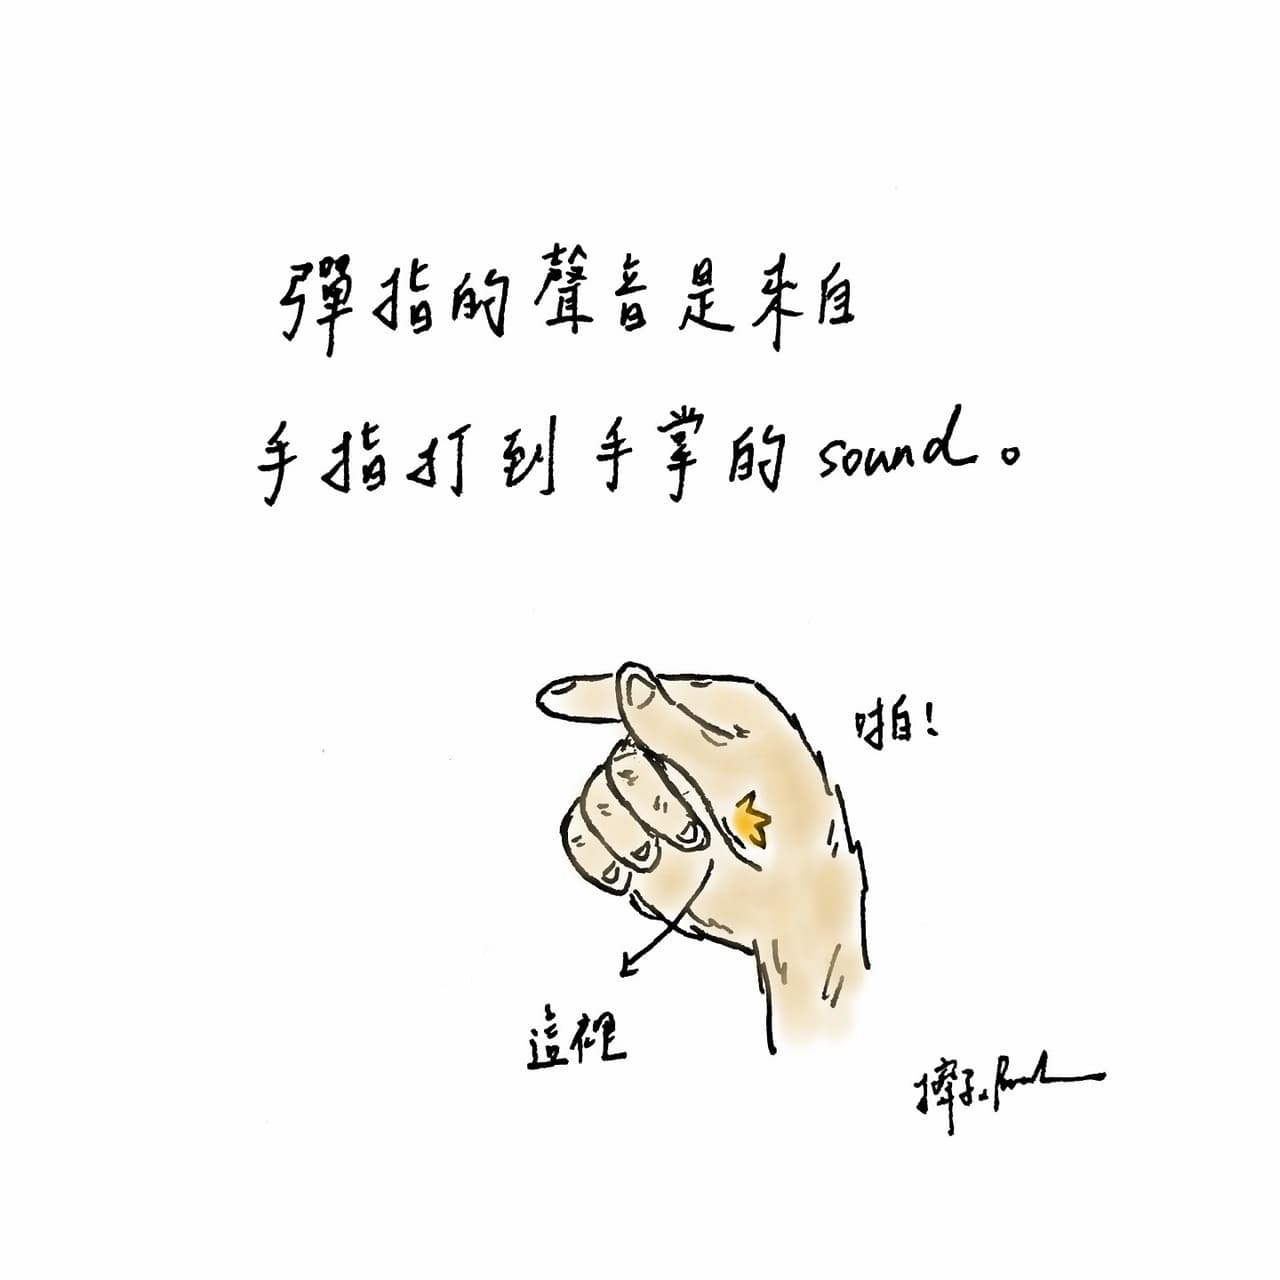 彈指的聲音是來自
手指打到手掌的sound。
啪!
這裡